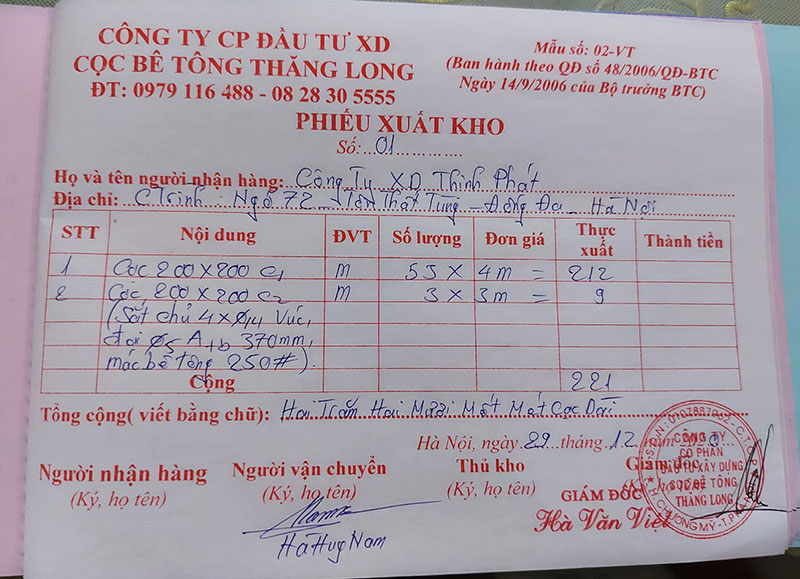 CÔNG TY CP ĐẦU TƯ XD
CỌC BÊ TÔNG THĂNG LONG
ĐT: 0979 116 488 - 08 28 30 5555
Mẫu số: 02-VT
(Ban hành theo QĐ số 48/2006/QĐ-BTC
Ngày 14/9/2006 của Bộ trưởng BTC)
PHIẾU XUẤT KHO
Số: 01
Họ và tên người nhận hàng: Công Ty XD Thịnh Phát
Địa chỉ: C Trình: Ngõ 72 - Tôn Thất Tùng - Đống Đa - Hà Nội
STT Nội dung ĐVT Số lượng Đơn giá Thực xuất Thành tiền
1 Cọc 200 x 200 C1 m 53 x 4m = 212
2 Cọc 200 x 200 C2 m 3 x 3m = 9
(Sắt chủ 4 x Ø14
đai Ø5 370mm,
mác bê tông 250#).
Cộng 221
Tổng cộng( viết bằng chữ): Hai Trăm Hai Mươi Mốt Mét Cọc Dài
Hà Nội, ngày 29 tháng 12 năm
Người nhận hàng Người vận chuyển Thủ kho Giám đốc
(Ký, họ tên) (Ký, họ tên) (Ký, họ tên)
GIÁM ĐỐC
Hà Văn Việt
Hà Huy Nam
CÔNG TY
CỔ PHẦN
ĐẦU TƯ XÂY DỰNG
CỌC BÊ TÔNG
THĂNG LONG
H. CHƯƠNG MỸ - T.P HÀ NỘI